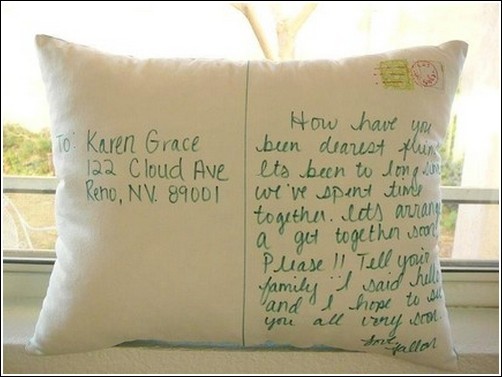 To: Karen Grace
122 Cloud Ave
Reno, NV. 89001
How have you
been dearest
Its been to long
we've spent time
together. lets arrange
a get together soon
Please!! Tell your
family I said hello
and I hope to see
you all very soon.
Love,
Fallon